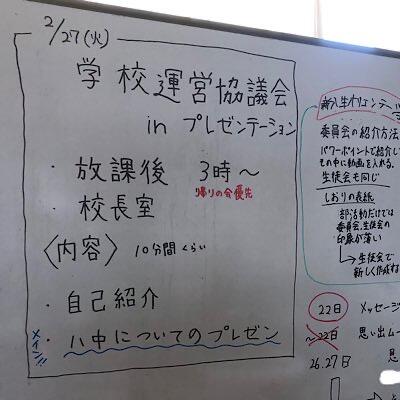 2/27(火)
学校運営協議会
in プレゼンテーション
・放課後 3時～
帰りの会優先
・校長室
〈内容〉 10分間くらい
・自己紹介
メイン!!
・八中についてのプレゼン
新入生オリエンテーション
委員会の紹介方法
パワーポイントで紹介し
その中に動画を入れる。
生徒会も同じ
しおりの表紙
部活動だけでは
委員会、生徒会の
印象が薄い
→生徒会で
新しく作成する
22日 メッセージ
～22日 思い出ムー
26.27日 思